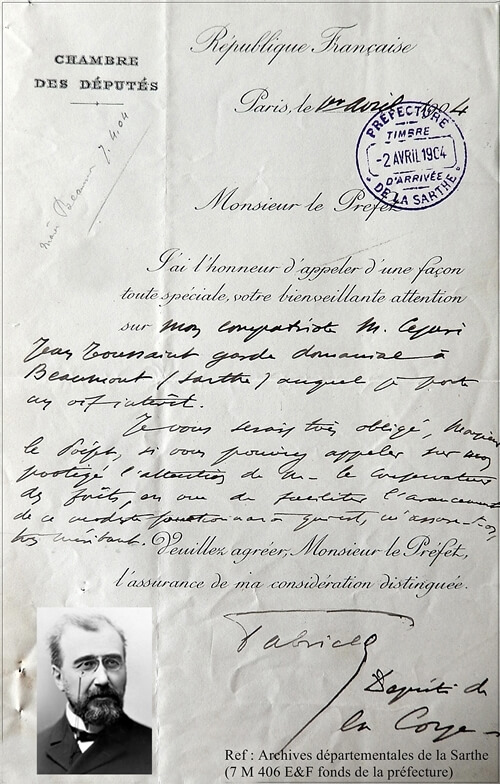 République Française
CHAMBRE
DES DÉPUTÉS
Paris, le 1er avril 1904
PRÉFECTURE
TIMBRE
-2 AVRIL 1904
D'ARRIVÉE
DE LA SARTHE
7.4.04
Monsieur le Préfet
J'ai l'honneur d'appeler d'une façon
toute spéciale, votre bienveillante attention
sur mon compatriote M.
Jean Toussaint garde domanial à
Beaumont (Sarthe) auquel je porte
un vif intérêt.
Je vous serais très obligé, Monsieur
le Préfet, si vous pouviez appeler sur mon
protégé l'attention de M. le Conservateur
des forêts, en vue de faciliter l'avancement
de ce modeste fonctionnaire qui est, m'assure-t-on,
très méritant. Veuillez agréer, Monsieur le Préfet,
l'assurance de ma considération distinguée.
Député de
la Corse
Ref : Archives départementales de la Sarthe
(7 M 406 E&F fonds de la préfecture)